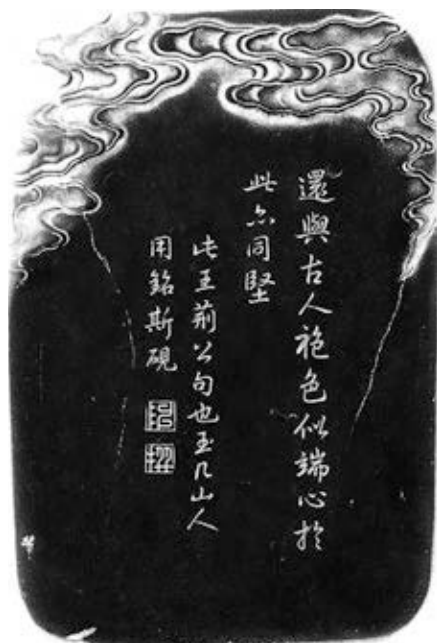 還與古人袍色似端心於
此亦同堅
此王荊公句也玉几山人
用銘斯硯